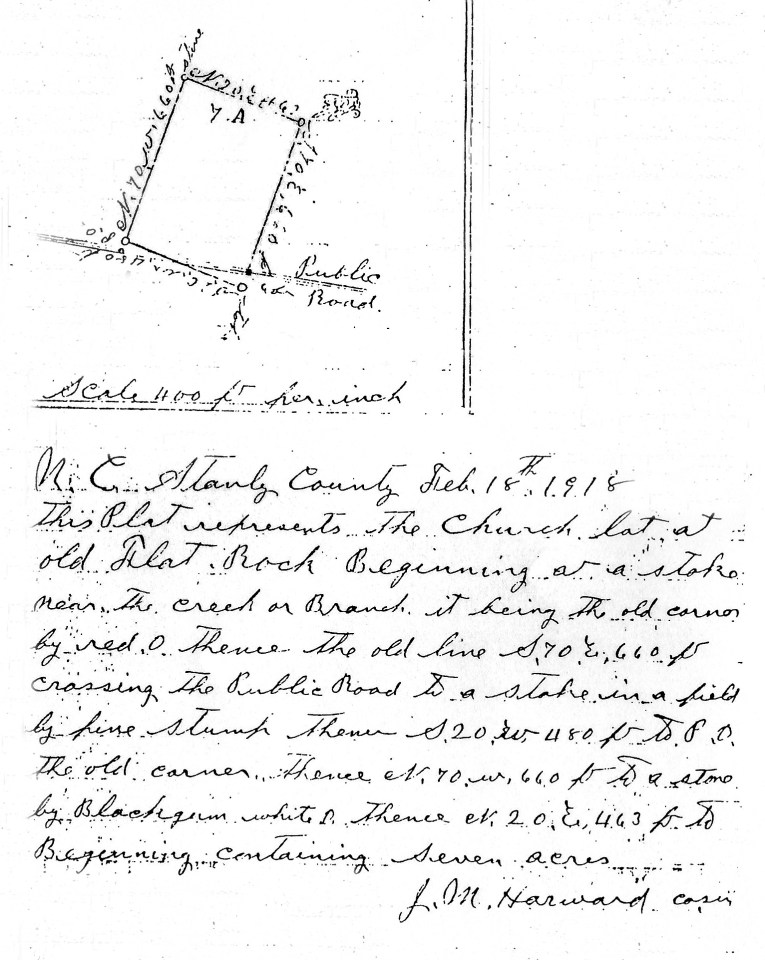 stone
N. 20. E 463
7. A
N. 70. W. 660 ft
S 70. E. 660
P. O.
Public
Road.
Scale 400 ft per inch
N. C. Stanly County Feb. 18th, 1918
this Plat represents the Church lot at
old Flat Rock Beginning at a stake
near the creek or Branch it being the old corner
by red. O. thence the old line S. 70 E. 660 ft
crossing the Public Road to a stake in a field
by pine stump thence S. 20. W. 480 ft to P. O.
the old corner. thence N. 70. W. 660 ft to a stone
by Blackgum white O. thence N. 20. E. 463 ft to
Beginning containing seven acres
J. M. Harward